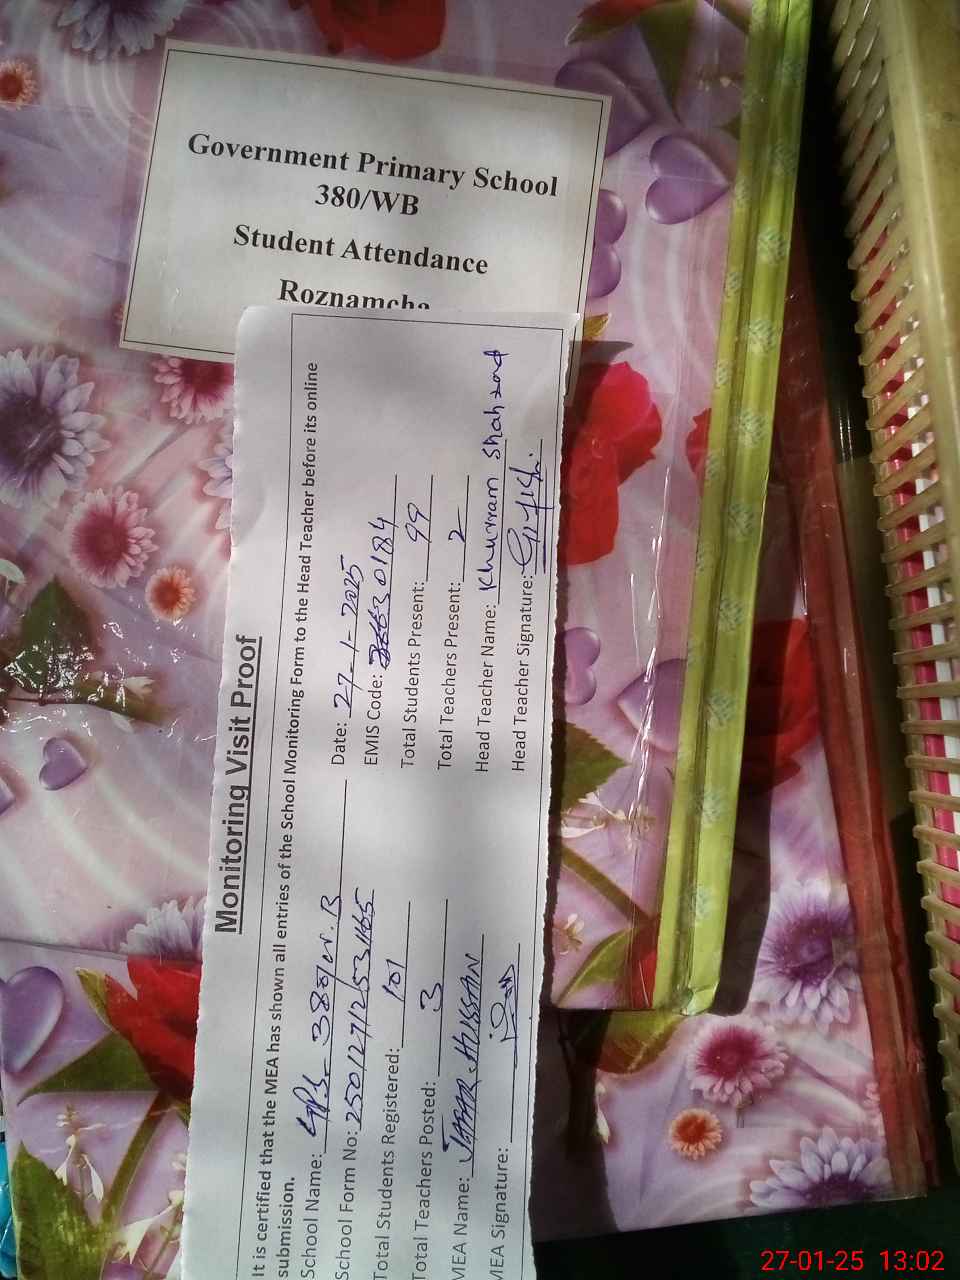 Government Primary School
380/WB
Student Attendance
Roznamcha
Monitoring Visit Proof
It is certified that the MEA has shown all entries of the School Monitoring Form to the Head Teacher before its online
submission.
School Name: GPS 380/W.B
Date: 27-1-2025
School Form No: 25012712531165
EMIS Code: 30184
Total Students Registered: 101
Total Students Present: 99
Total Teachers Posted: 3
Total Teachers Present: 2
MEA Name: JAFAR HUSSAN
Head Teacher Name: Khurram Shahzad
MEA Signature:
Head Teacher Signature:
27-01-25 13:02